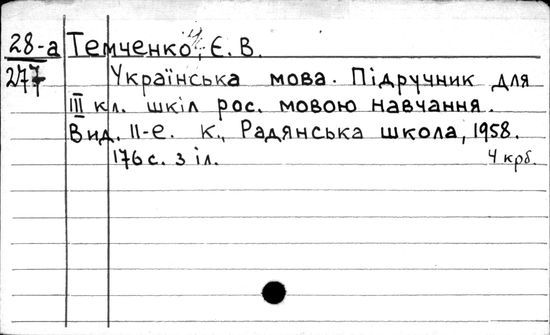 28-а Темченко, Є. В.
277 Українська мова. Підручник для
III кл. шкіл рос. мовою навчання.
Вид. 11-е. К., Радянська школа, 1958.
176 с. з іл. 4 крб.